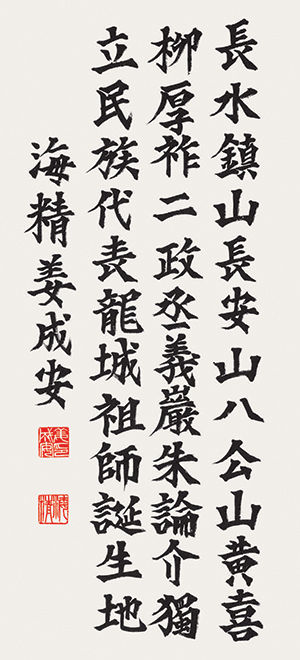 長水鎮山長安山八公山黄喜
柳厚祚二政丞義巖朱論介獨
立民族代表龍城祖師誕生地
海精姜成安